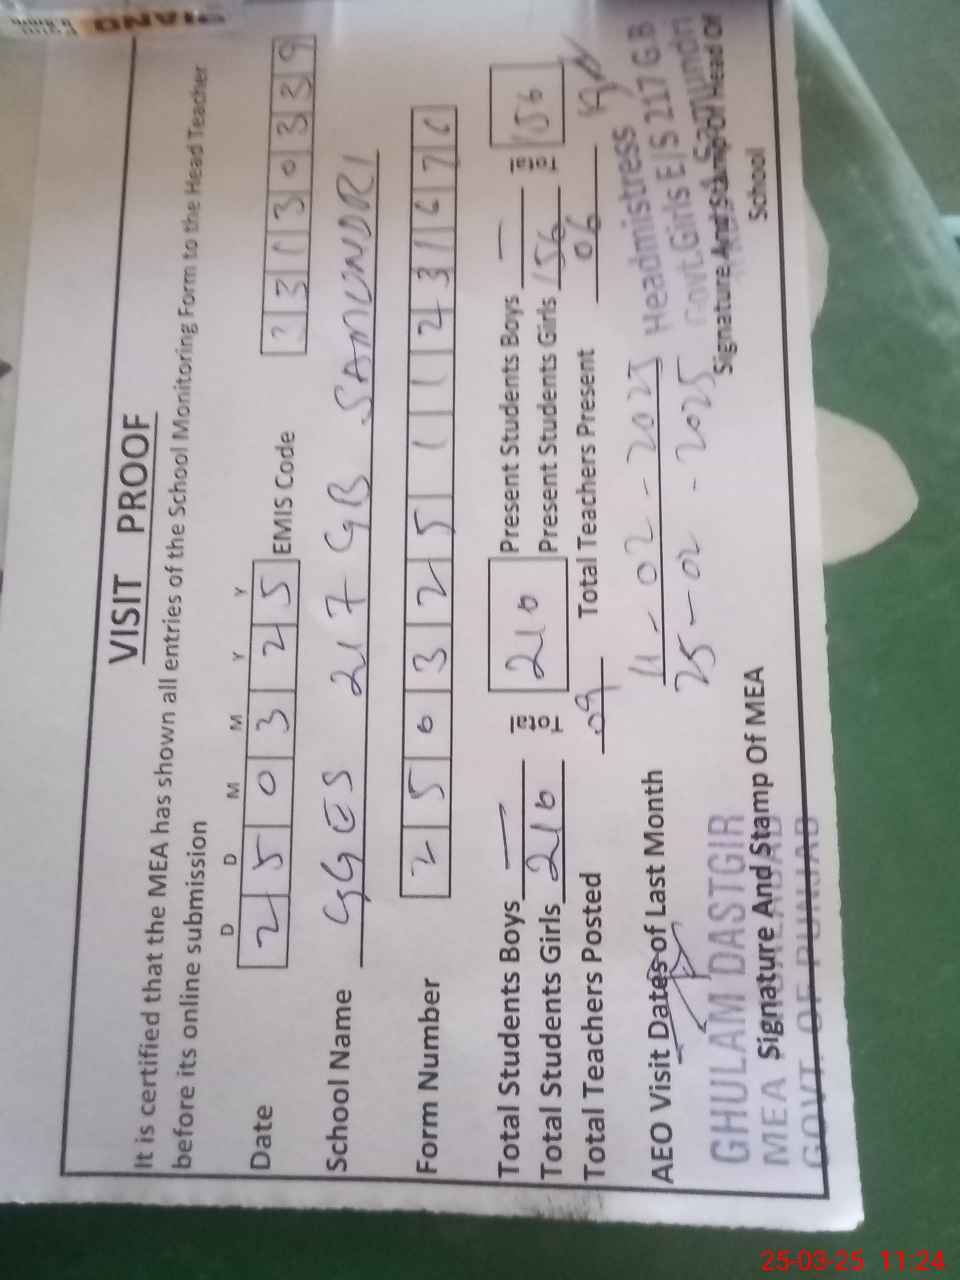 PIANO
VISIT PROOF
It is certified that the MEA has shown all entries of the School Monitoring Form to the Head Teacher
before its online submission
D D M M Y Y
Date 2 5 0 3 2 5 EMIS Code 3 3 1 3 0 3 3 9
School Name GGES 217 GB SAMUNDRI
Form Number 2 5 0 3 2 5 1 1 2 3 1 6 7 6
Total Students Boys — Total 216 Present Students Boys — Total 156
Total Students Girls 216 Present Students Girls 156
Total Teachers Posted 09 Total Teachers Present 06
AEO Visit Dates of Last Month 11-02-2025
25-02-2025
Headmistress
Govt. Girls E/S 217 G.B
Signature And Stamp Of Head Of
School
GHULAM DASTGIR
MEA
Signature And Stamp Of MEA
GOVT. OF PUNJAB
25-03-25 11:24